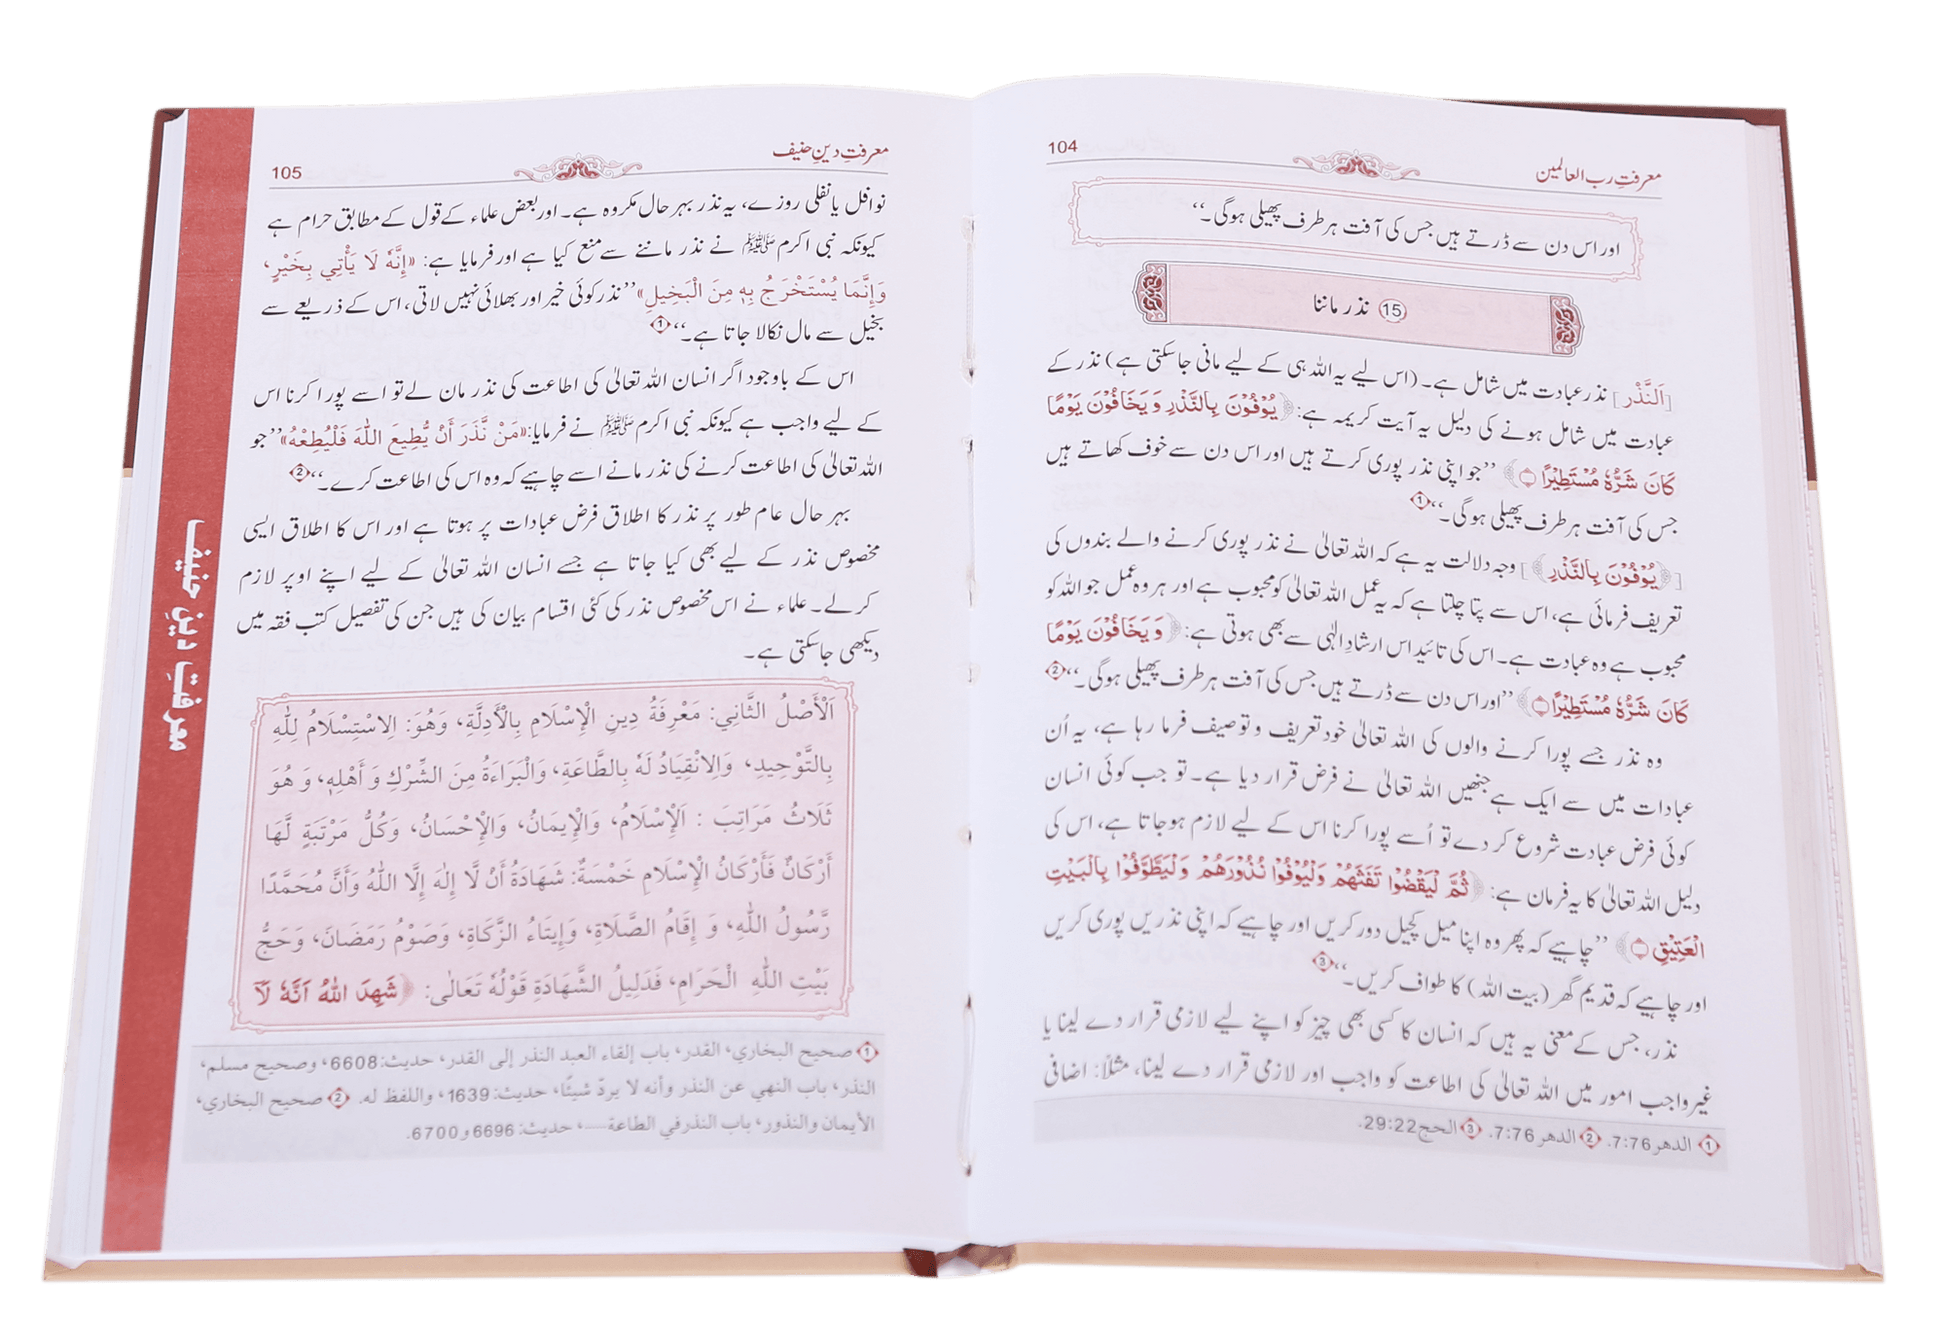 معرفتِ رب العالمین
104
اور اس دن سے ڈرتے ہیں جس کی آفت ہر طرف پھیلی ہوگی۔‘‘
15 نذر ماننا
[اَلنَّذْر] نذر عبادت میں شامل ہے۔ (اس لیے یہ اللہ ہی کے لیے مانی جاسکتی ہے) نذر کے
عبادت میں شامل ہونے کی دلیل یہ آیت کریمہ ہے: ﴿يُوْفُوْنَ بِالنَّذْرِ وَيَخَافُوْنَ يَوْمًا
كَانَ شَرُّهٗ مُسْتَطِيْرًا﴾ ’’جو اپنی نذر پوری کرتے ہیں اور اس دن سے خوف کھاتے ہیں
جس کی آفت ہر طرف پھیلی ہوگی۔‘‘ 1
[﴿يُوْفُوْنَ بِالنَّذْرِ﴾] وجہ دلالت یہ ہے کہ اللہ تعالیٰ نے نذر پوری کرنے والے بندوں کی
تعریف فرمائی ہے، اس سے پتا چلتا ہے کہ یہ عمل اللہ تعالیٰ کو محبوب ہے اور ہر وہ عمل جو اللہ کو
محبوب ہے وہ عبادت ہے۔ اس کی تائید اس ارشادِ الٰہی سے بھی ہوتی ہے: ﴿وَيَخَافُوْنَ يَوْمًا
كَانَ شَرُّهٗ مُسْتَطِيْرًا﴾ ’’اور اس دن سے ڈرتے ہیں جس کی آفت ہر طرف پھیلی ہوگی۔‘‘ 2
وہ نذر جسے پورا کرنے والوں کی اللہ تعالیٰ خود تعریف و توصیف فرما رہا ہے، یہ اُن
عبادات میں سے ایک ہے جنھیں اللہ تعالیٰ نے فرض قرار دیا ہے۔ تو جب کوئی انسان
کوئی فرض عبادت شروع کر دے تو اُسے پورا کرنا اس کے لیے لازم ہوجاتا ہے، اس کی
دلیل اللہ تعالیٰ کا یہ فرمان ہے: ﴿ثُمَّ لْيَقْضُوْا تَفَثَهُمْ وَلْيُوْفُوْا نُذُوْرَهُمْ وَلْيَطَّوَّفُوْا بِالْبَيْتِ
الْعَتِيْقِ﴾ ’’چاہیے کہ پھر وہ اپنا میل کچیل دور کریں اور چاہیے کہ اپنی نذریں پوری کریں
اور چاہیے کہ قدیم گھر (بیت اللہ) کا طواف کریں۔‘‘ 3
نذر، جس کے معنی یہ ہیں کہ انسان کا کسی بھی چیز کو اپنے لیے لازمی قرار دے لینا یا
غیر واجب امور میں اللہ تعالیٰ کی اطاعت کو واجب اور لازمی قرار دے لینا، مثلاً: اضافی
1 الدهر 7:76. 2 الدهر 7:76. 3 الحج 29:22.
معرفتِ دینِ حنیف
105
نوافل یا نفلی روزے، یہ نذر بہر حال مکروہ ہے۔ اور بعض علماء کے قول کے مطابق حرام ہے
کیونکہ نبی اکرم ﷺ نے نذر ماننے سے منع کیا ہے اور فرمایا ہے: «إِنَّهُ لَا يَأْتِي بِخَيْرٍ،
وَإِنَّمَا يُسْتَخْرَجُ بِهِ مِنَ الْبَخِيلِ» ’’نذر کوئی خیر اور بھلائی نہیں لاتی، اس کے ذریعے سے
بخیل سے مال نکالا جاتا ہے۔‘‘ 1
اس کے باوجود اگر انسان اللہ تعالیٰ کی اطاعت کی نذر مان لے تو اسے پورا کرنا اس
کے لیے واجب ہے کیونکہ نبی اکرم ﷺ نے فرمایا: «مَنْ نَّذَرَ أَنْ يُّطِيعَ اللّٰهَ فَلْيُطِعْهُ» ’’جو
اللہ تعالیٰ کی اطاعت کرنے کی نذر مانے اسے چاہیے کہ وہ اس کی اطاعت کرے۔‘‘ 2
بہر حال عام طور پر نذر کا اطلاق فرض عبادات پر ہوتا ہے اور اس کا اطلاق ایسی
مخصوص نذر کے لیے بھی کیا جاتا ہے جسے انسان اللہ تعالیٰ کے لیے اپنے اوپر لازم
کرلے۔ علماء نے اس مخصوص نذر کی کئی اقسام بیان کی ہیں جن کی تفصیل کتب فقہ میں
دیکھی جاسکتی ہے۔
اَلْأَصْلُ الثَّانِي: مَعْرِفَةُ دِينِ الْإِسْلَامِ بِالْأَدِلَّةِ، وَهُوَ: اِلاسْتِسْلَامُ لِلّٰهِ
بِالتَّوْحِيدِ، وَالِانْقِيَادُ لَهُ بِالطَّاعَةِ، وَالْبَرَاءَةُ مِنَ الشِّرْكِ وَأَهْلِهِ، وَهُوَ
ثَلَاثُ مَرَاتِبَ : اَلْإِسْلَامُ، وَالْإِيمَانُ، وَالْإِحْسَانُ، وَكُلُّ مَرْتَبَةٍ لَّهَا
أَرْكَانٌ فَأَرْكَانُ الْإِسْلَامِ خَمْسَةٌ: شَهَادَةُ أَنْ لَّا إِلٰهَ إِلَّا اللّٰهُ وَأَنَّ مُحَمَّدًا
رَّسُولُ اللّٰهِ، وَ إِقَامُ الصَّلَاةِ، وَإِيتَاءُ الزَّكَاةِ، وَصَوْمُ رَمَضَانَ، وَحَجُّ
بَيْتِ اللّٰهِ الْحَرَامِ، فَدَلِيلُ الشَّهَادَةِ قَوْلُهُ تَعَالٰى: ﴿شَهِدَ اللّٰهُ اَنَّهٗ لَاۤ
1 صحيح البخاري، القدر، باب إلقاء العبد النذر إلى القدر، حديث: 6608، وصحيح مسلم،
النذر، باب النهي عن النذر وأنه لا يردّ شيئًا، حديث: 1639، واللفظ له. 2 صحيح البخاري،
الأيمان والنذور، باب النذر في الطاعة....، حديث: 6696 و 6700.
معرفتِ دینِ حنیف